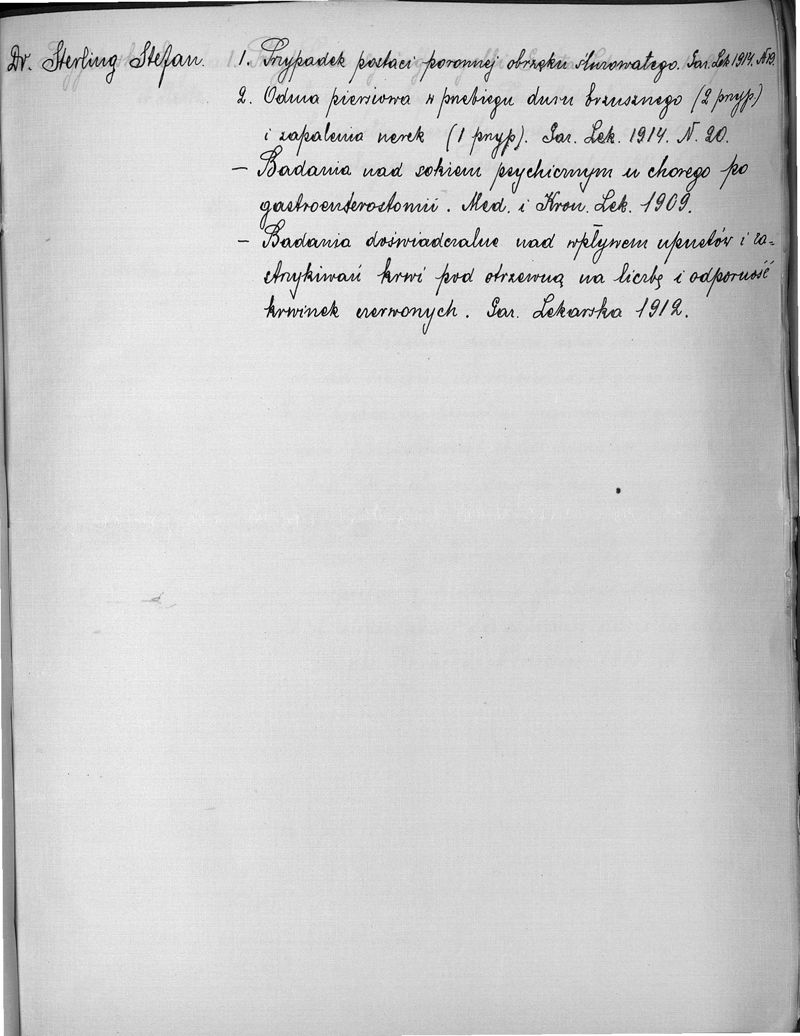 Dr. Sterling Stefan. 1. Przypadek postaci poronnej obrzęku śluzowatego. Gaz. Lek 1914. N 19.
2. Odma piersiowa w przebiegu duru brzusznego (2 przyp)
i zapalenia nerek (1 przyp). Gaz. Lek. 1914. N. 20.
– Badania nad sokiem psychicznym u chorego po
gastroenterostomii. Med. i Kron. Lek. 1909.
– Badania doświadczalne nad wpływem upustów i za-
strzykiwań krwi pod otrzewną na liczbę i odporność
krwinek czerwonych. Gaz. Lekarska 1912.